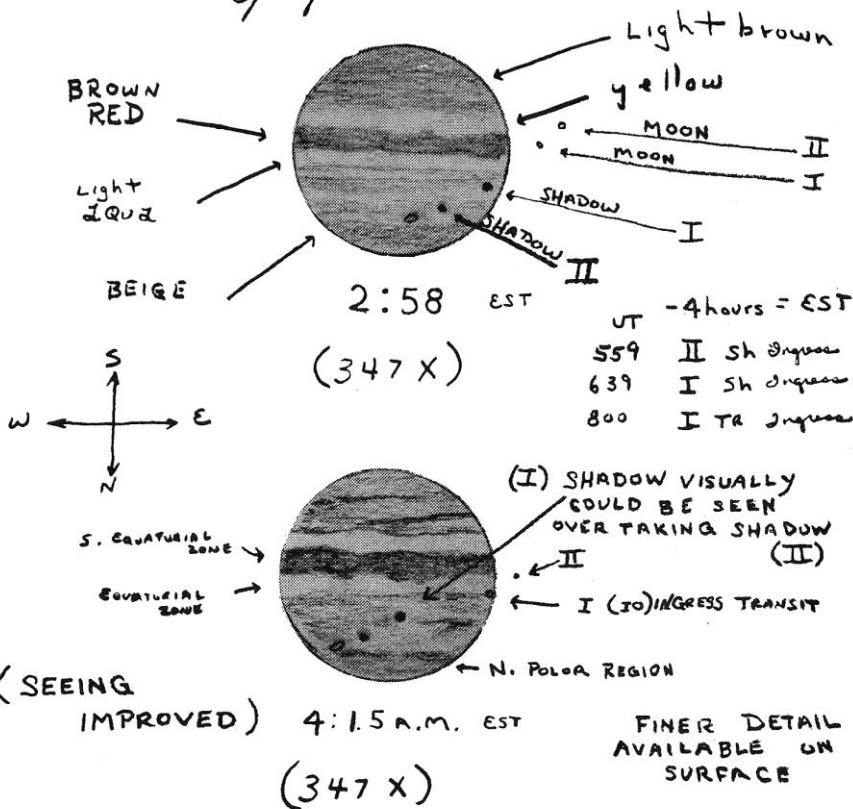 Light brown
yellow
BROWN
RED
MOON
II
MOON
I
Light
aqua
SHADOW
I
SHADOW
II
BEIGE
2:58 EST
(347 X)
UT -4hours = EST
559 II Sh Ingress
639 I Sh Ingress
800 I TR Ingress
S
W E
N
(I) SHADOW VISUALLY
COULD BE SEEN
OVER TAKING SHADOW
(II)
S. EQUATURIAL
ZONE
II
EQUATURIAL
ZONE
I (IO) INGRESS TRANSIT
N. POLOR REGION
(SEEING
IMPROVED)
4:1.5 A.M. EST
(347 X)
FINER DETAIL
AVAILABLE ON
SURFACE